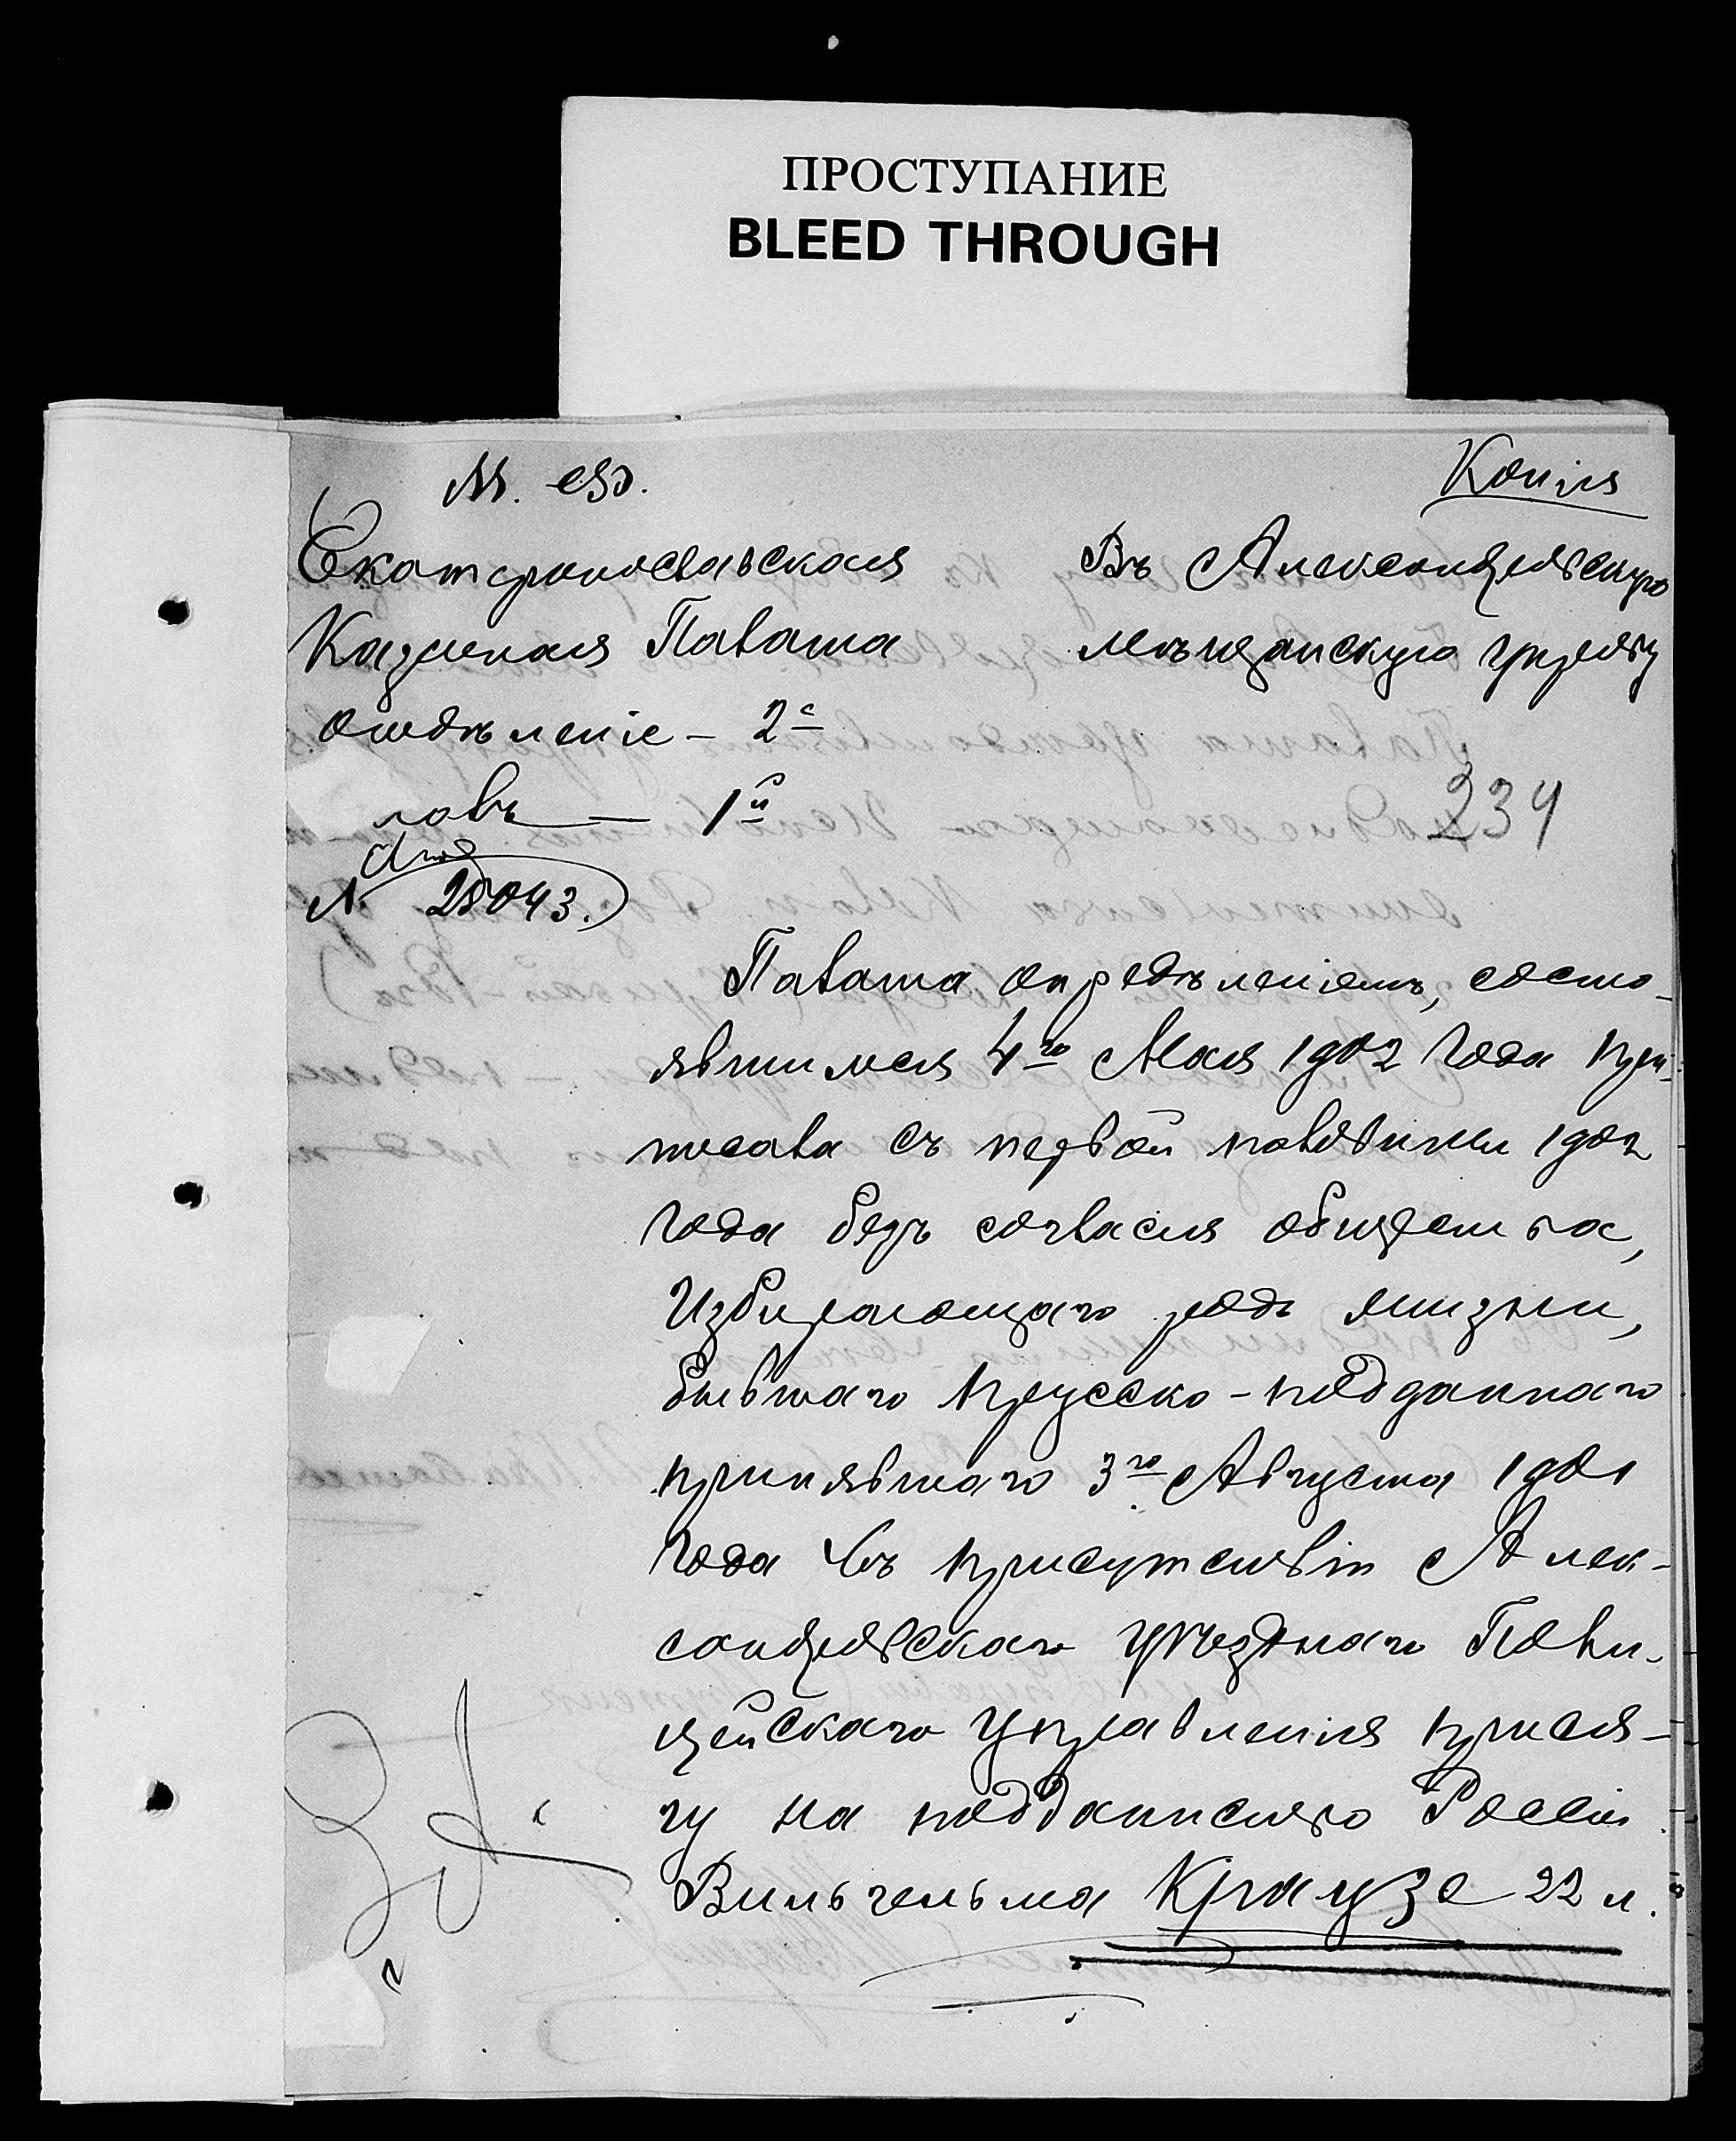 ПРОСТУПАНИЕ
BLEED THROUGH
Копія
М.
Екатеринославская
Казенная Палата
отдѣленіе – 2е
Въ Александровскую
мѣщанскую управу
334
1й
№ 28043.
Палата опредѣленіемъ, состо-
явшимся 4го Мая 1902 года при-
писала съ первой половины 1902
года безъ согласія общества,
избирающаго родъ жизни,
бывшаго прусско-подданнаго
принявшаго 3го Августа 1901
года въ присутствіи Алек-
сандровскаго уѣзднаго Поли-
цейскаго управленія прися-
гу на подданство Россіи
Вильгельма Краузе 22 л.